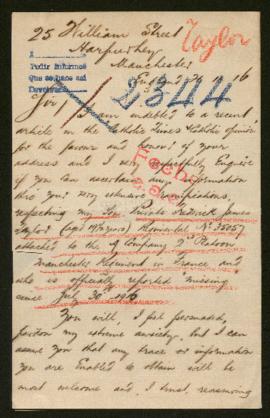 25 William Street
Taylor
Harpurhey
Manchester
England
1
Pedir informes
Que se hace así
2344
Sir, I am indebted to a recent
article in the Catholic Times
for the favour and honour of your
address and I very respectfully Enquire
Fecho
if you can ascertain any information
thro' your very esteemed
respecting my Son Private James
Taylor (aged 19 years)
attached to the Company 2nd Platoon
Manchester Regiment in France and
who is officially reported missing
since July 30 1916
You will, I feel persuaded,
pardon my extreme anxiety, but I can
assure you that any trace or information
you are Enabled to obtain will be
most welcome and, I trust, reassuring